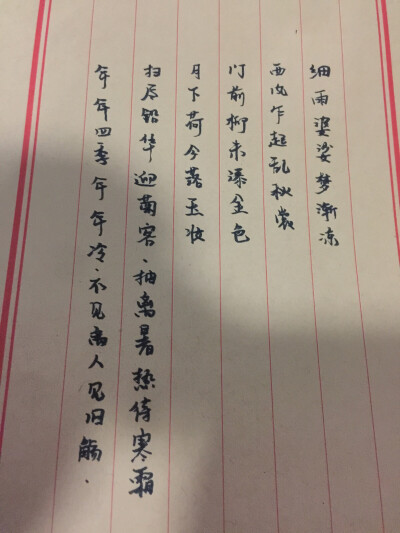 细雨婆娑梦渐凉
西风乍起乱秋裳
门前柳未金色
月下荷今落玉妆
扫尽铅华迎菊客、抽离暑热待寒霜
年年四季年年冷、不见离人见旧觞.